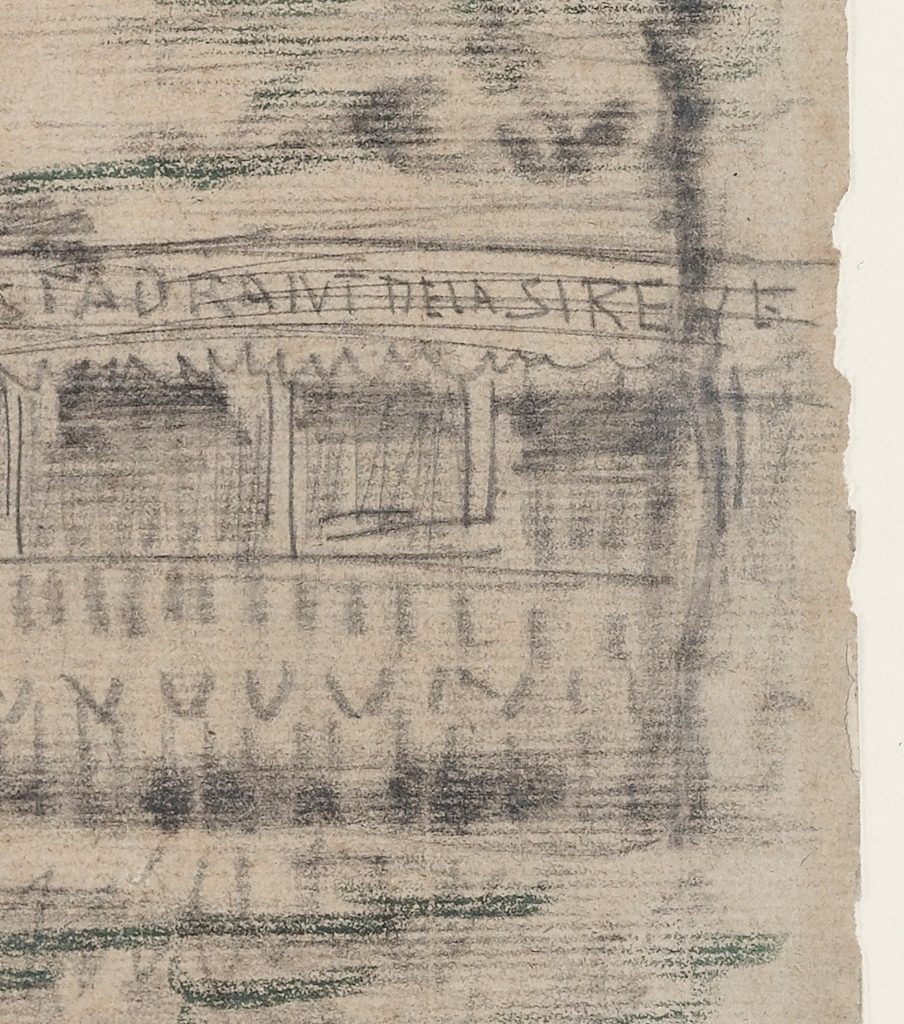 STAURANT DE LA SIRENE